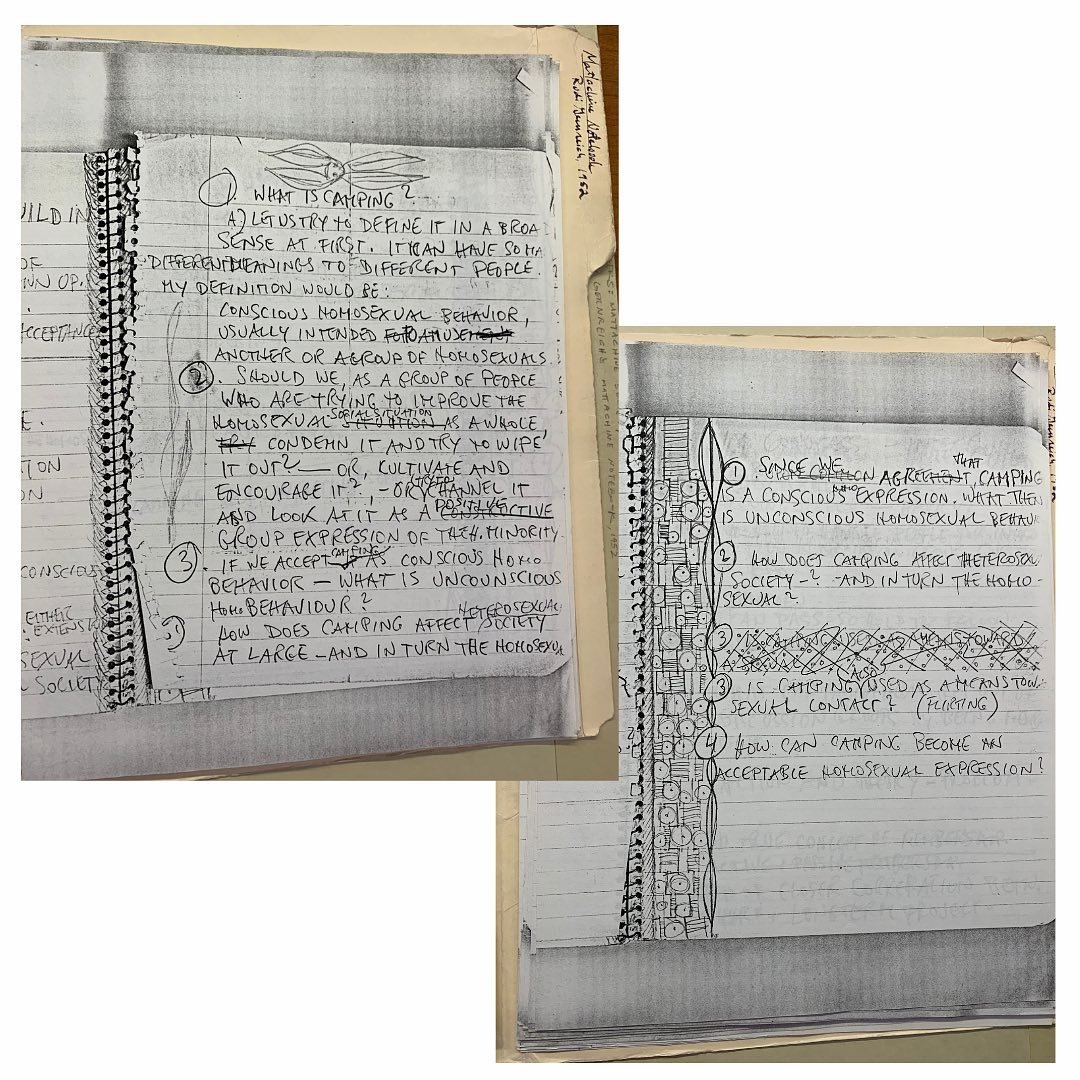 Mattachine Notebook
Rudi Gernreich, 1952
UILD IN
OF
WN OP.
ACCEPTANCE
E.
ION
ON
CONSCIOUS
EITHER
EXTENSI
SEXUAL
SOCIETY
1. WHAT IS CAMPING?
A) LET US TRY TO DEFINE IT IN A BROA
SENSE AT FIRST. IT CAN HAVE SO MA
DIFFERENT MEANINGS TO DIFFERENT PEOPLE.
MY DEFINITION WOULD BE:
CONSCIOUS HOMOSEXUAL BEHAVIOR,
USUALLY INTENDED TO AMUSE
ANOTHER OR A GROUP OF HOMOSEXUALS
2. SHOULD WE, AS A GROUP OF PEOPLE
WHO ARE TRYING TO IMPROVE THE
HOMOSEXUAL SOCIAL SITUATION SITUATION AS A WHOLE,
TRY CONDEMN IT AND TRY TO WIPE
IT OUT? — OR, CULTIVATE AND
ENCOURAGE IT?, - OR CHANNEL IT
AND LOOK AT IT AS A POSITIVE CONSTRUCTIVE
GROUP EXPRESSION OF THE H. MINORITY
3. IF WE ACCEPT CAMPING AS CONSCIOUS HOMO
BEHAVIOR — WHAT IS UNCOUNSCIOUS
HOMO BEHAVIOUR?
HOW DOES CAMPING AFFECT HETEROSEXUAL SOCIETY
AT LARGE - AND IN TURN THE HOMOSEXUA
MATTACHINE NOTEBOOK, 1952
1. SINCE WE AGREE THAT, CAMPING
IS A CONSCIOUS HOMO EXPRESSION. WHAT THEN
IS UNCONSCIOUS HOMOSEXUAL BEHAVI
2 HOW DOES CAMPING AFFECT HETEROSEXU
SOCIETY - ? - AND IN TURN THE HOMO-
SEXUAL?
3
3 IS CAMPING (ALSO) USED AS A MEANS TOW.
SEXUAL CONTACT? (FLIRTING)
4 HOW CAN CAMPING BECOME AN
ACCEPTABLE HOMOSEXUAL EXPRESSION?